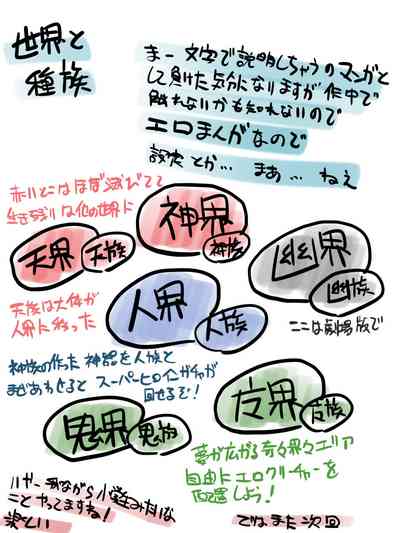 世界と
種族
まー文字で説明しちゃうのマンガと
して負けた気分になりますが作中で
触れないかも知れないので
エロまんがなので
設定とか… まあ… ねえ
赤いとこはほぼ滅びてて
生き残りは他の世界に
神界
神族
天界
天族
幽界
幽族
人界
人族
天族は大体が
人界に移った
ここは劇場版で
神族の作った神器を人族と
まぜあわせると スーパーヒロインガチャが
回せるぞ!
鬼界
鬼族
皮界
皮族
夢が広がる奇々界々エリア
自由にエロクリーチャーを
配置しよう!
いやー 我ながら小学生みたいな
ことやってますね!
楽しい
ではまた次回